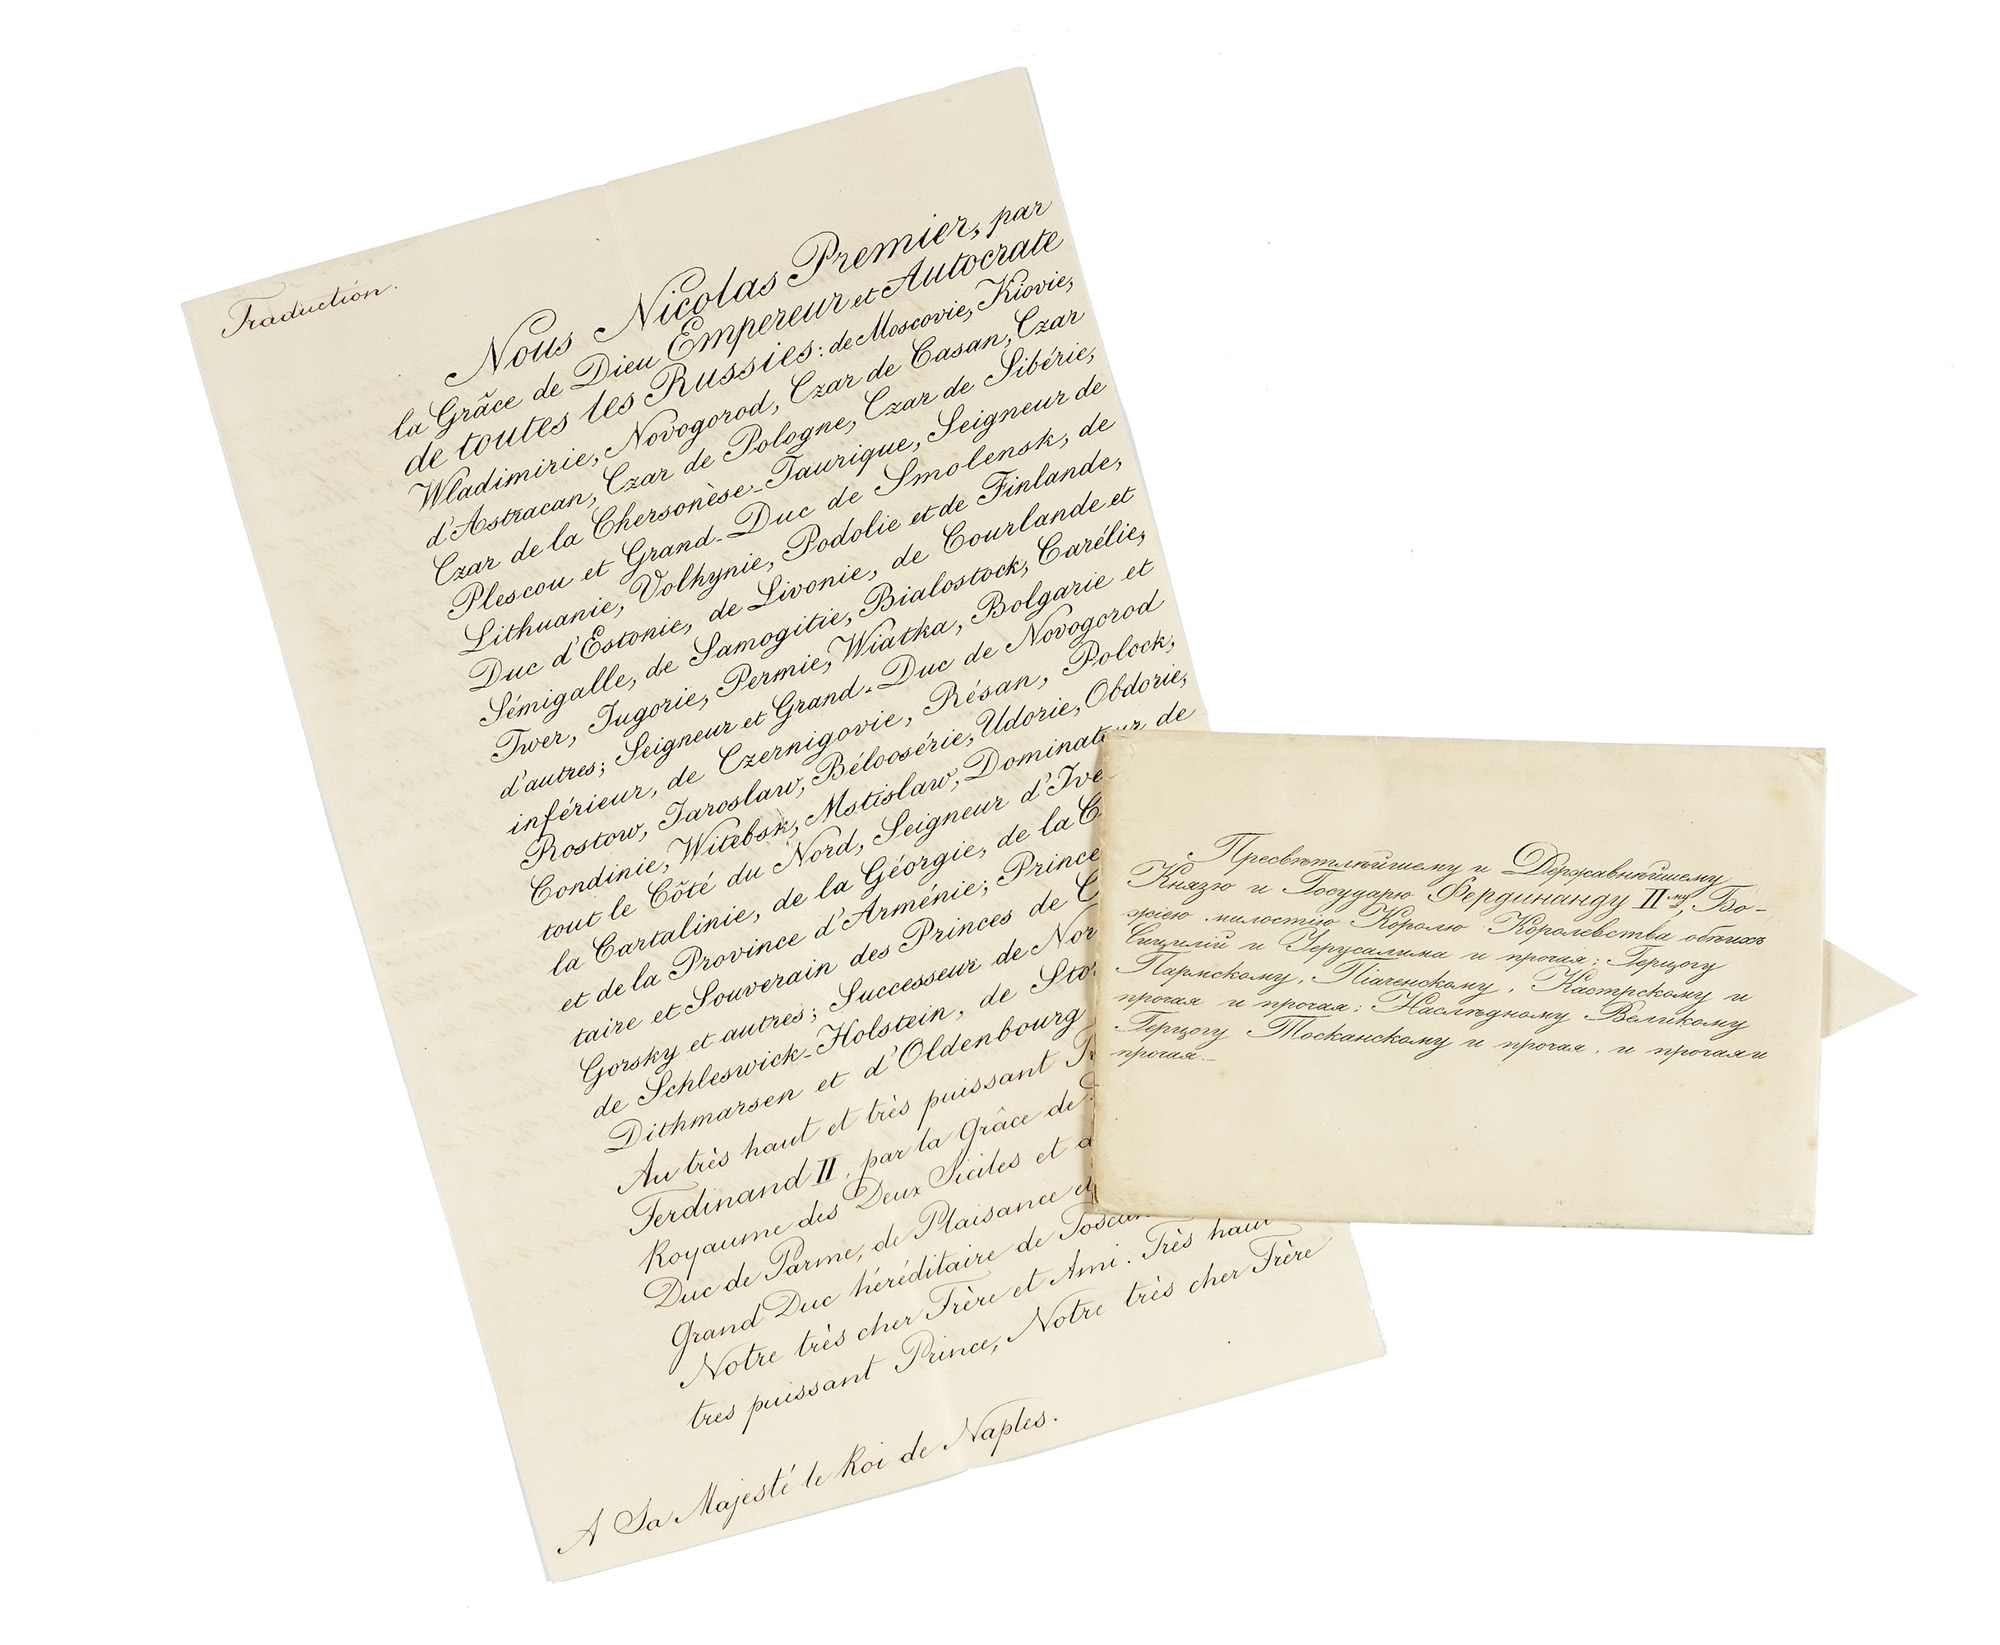 Traduction.
Nous Nicolas Premier, par
la Grâce de Dieu Empereur et Autocrate
de toutes les Russies: de Moscovie, Kiovie,
Wladimirie, Novogorod, Czar de Casan, Czar
d'Astracan, Czar de Pologne, Czar de Sibérie,
Czar de la Chersonèse-Taurique, Seigneur de
Plescou et Grand-Duc de Smolensk, de
Lithuanie, Volhynie, Podolie et de Finlande,
Duc d'Estonie, de Livonie, de Courlande et
Sémigalle, de Samogitie, Bialostock, Carélie,
Twer, Jugorie, Permie, Wiatka, Bolgarie et
d'autres; Seigneur et Grand-Duc de Novogorod
inférieur, de Czernigovie, Résan, Polock,
Rostow, Jaroslaw, Béloosérie, Udorie, Obdorie,
Condinie, Witebsk, Mstislaw, Dominateur de
tout le Côté du Nord, Seigneur d'Ive
la Cartalinie, de la Géorgie, de la C
et de la Province d'Arménie; Prince
taire et Souverain des Princes de C
Gorsky et autres; Successeur de Nor
de Schleswick-Holstein, de Sto
Dithmarsen et d'Oldenbourg
Au très haut et très puissant
Ferdinand II, par la Grâce de
Royaume des Deux Siciles et
Duc de Parme, de Plaisance et
Grand Duc héréditaire de Toscan
Notre très cher Frère et Ami. Très haut
tres puissant Prince, Notre très cher Frère
A Sa Majesté le Roi de Naples.
Пресвѣтлѣйшему и Державнѣйшему
Князю и Государю Фердинанду II му, Бо-
жіею милостію Королю Королевства обѣихъ
Сицилій и Іерусалима и прочая; Герцогу
Пармскому, Піаченскому, Кастрскому и
прочая и прочая; Наслѣдному Великому
Герцогу Тосканскому и прочая, и прочая и
прочая.